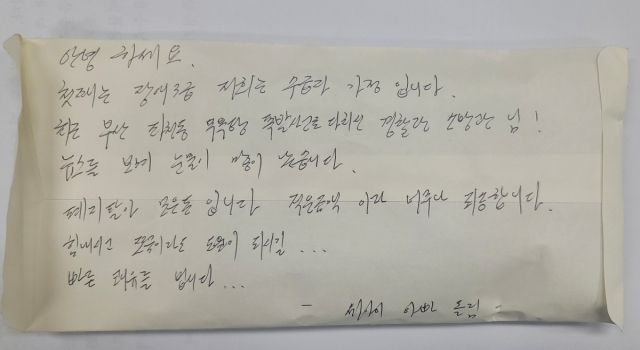 안녕 하세요.
첫째는 장애3급 저희는 수급자 가정 입니다.
부산 목욕탕 폭발사고로 다치신 경찰관 소방관 님!
뉴스를 보며 눈물이 많이 났습니다.
폐지팔아 모은돈 입니다 적은금액 이라 너무나 죄송합니다.
힘내시고 조금이라도 도움이 되시길 ...
빠른 쾌유를 빕니다...
- 세아이 아빠 올림 -